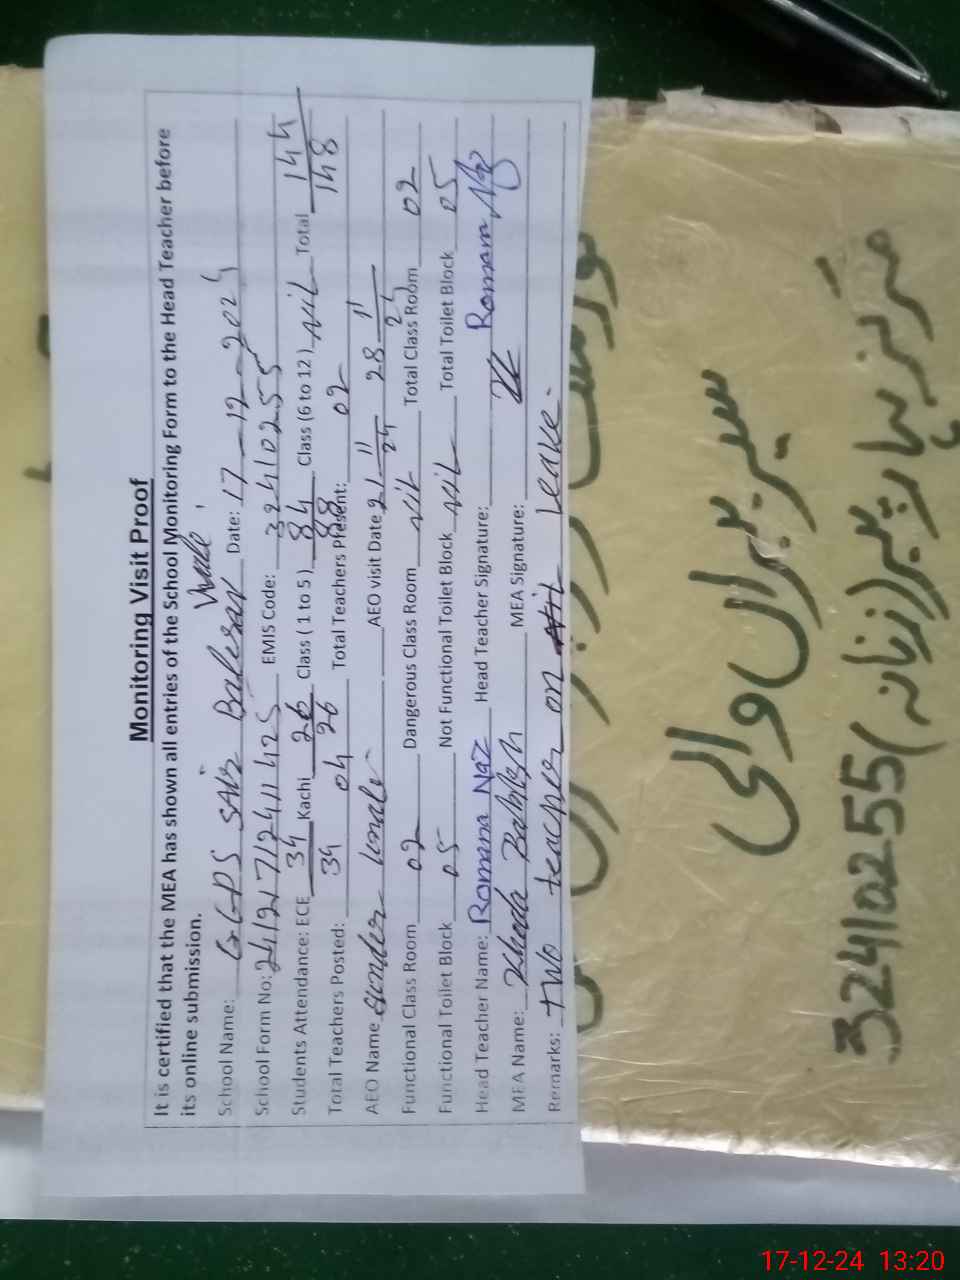 Monitoring Visit Proof
It is certified that the MEA has shown all entries of the School Monitoring Form to the Head Teacher before
its online submission.
School Name: GGPS SAir Wali Date: 17-12-2024
School Form No: 24121712411425 EMIS Code: 32410255
Students Attendance: ECE 34/34 Kachi 26/26 Class (1 to 5) 84/88 Class (6 to 12) Nil Total 144/148
Total Teachers Posted: 04 Total Teachers Present: 02
AEO Name AEO visit Date 21 11 24 28 11 24
Functional Class Room 02 Dangerous Class Room Nil Total Class Room 02
Functional Toilet Block 05 Not Functional Toilet Block Nil Total Toilet Block 05
Head Teacher Name: Romana Naz Head Teacher Signature: Romana Naz
MEA Name: Khuda Bakhsh MEA Signature:
Remarks: two teacher on leave.
سیرراں والی
مرکز بہار پیر (زنانہ) 32410255
17-12-24 13:20